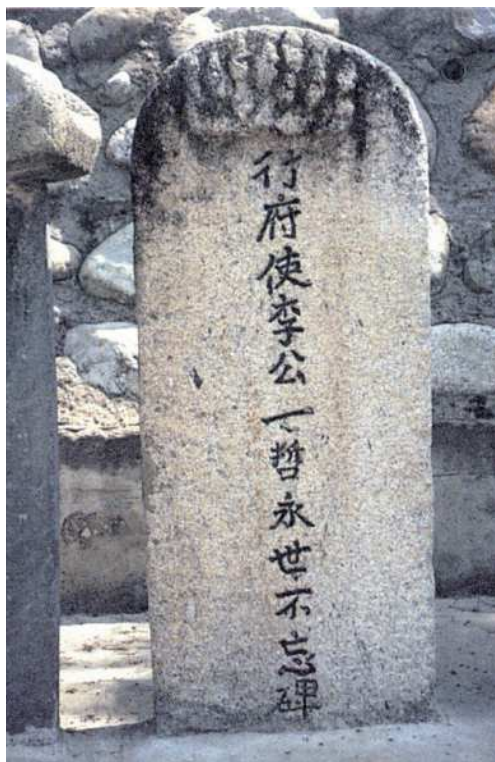 行府使李公一哲永世不忘碑